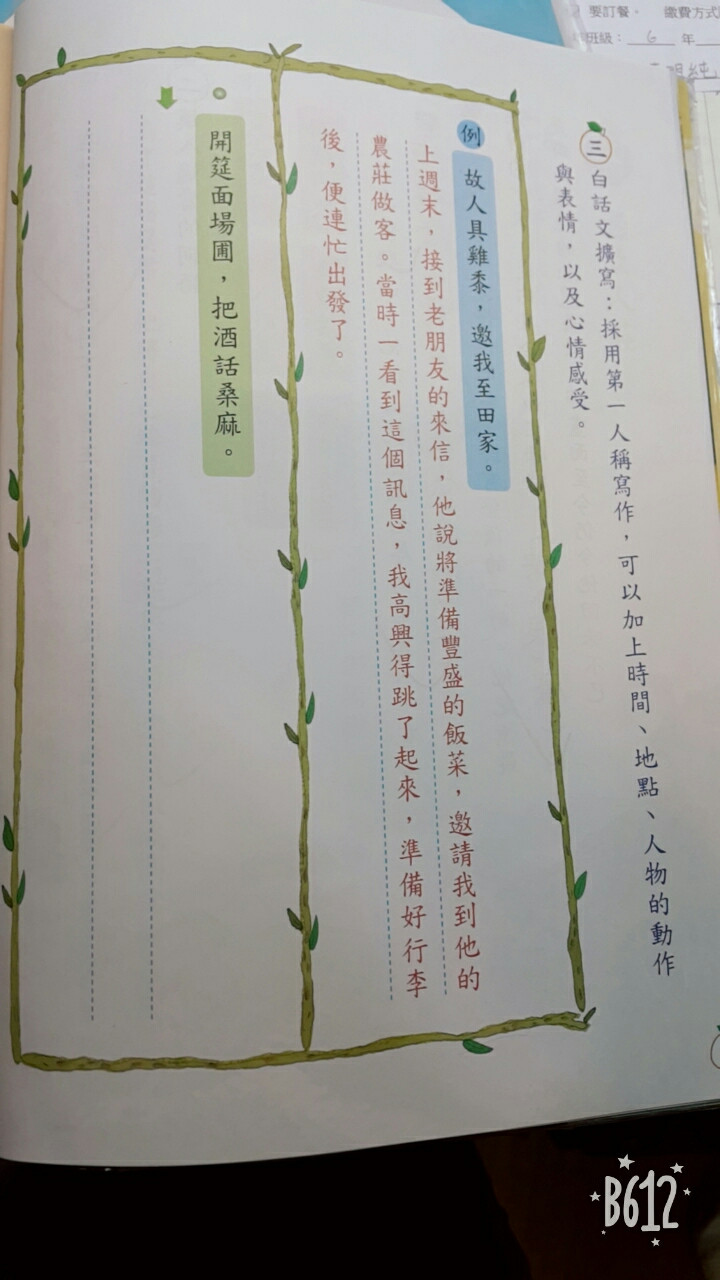 三 白話文擴寫：採用第一人稱寫作，可以加上時間、地點、人物的動作
與表情，以及心情感受。
例 故人具雞黍，邀我至田家。
上週末，接到老朋友的來信，他說將準備豐盛的飯菜，邀請我到他的
農莊做客。當時一看到這個訊息，我高興得跳了起來，準備好行李
後，便連忙出發了。
開筵面場圃，把酒話桑麻。
要訂餐。 繳費方式
班級：6年
B612